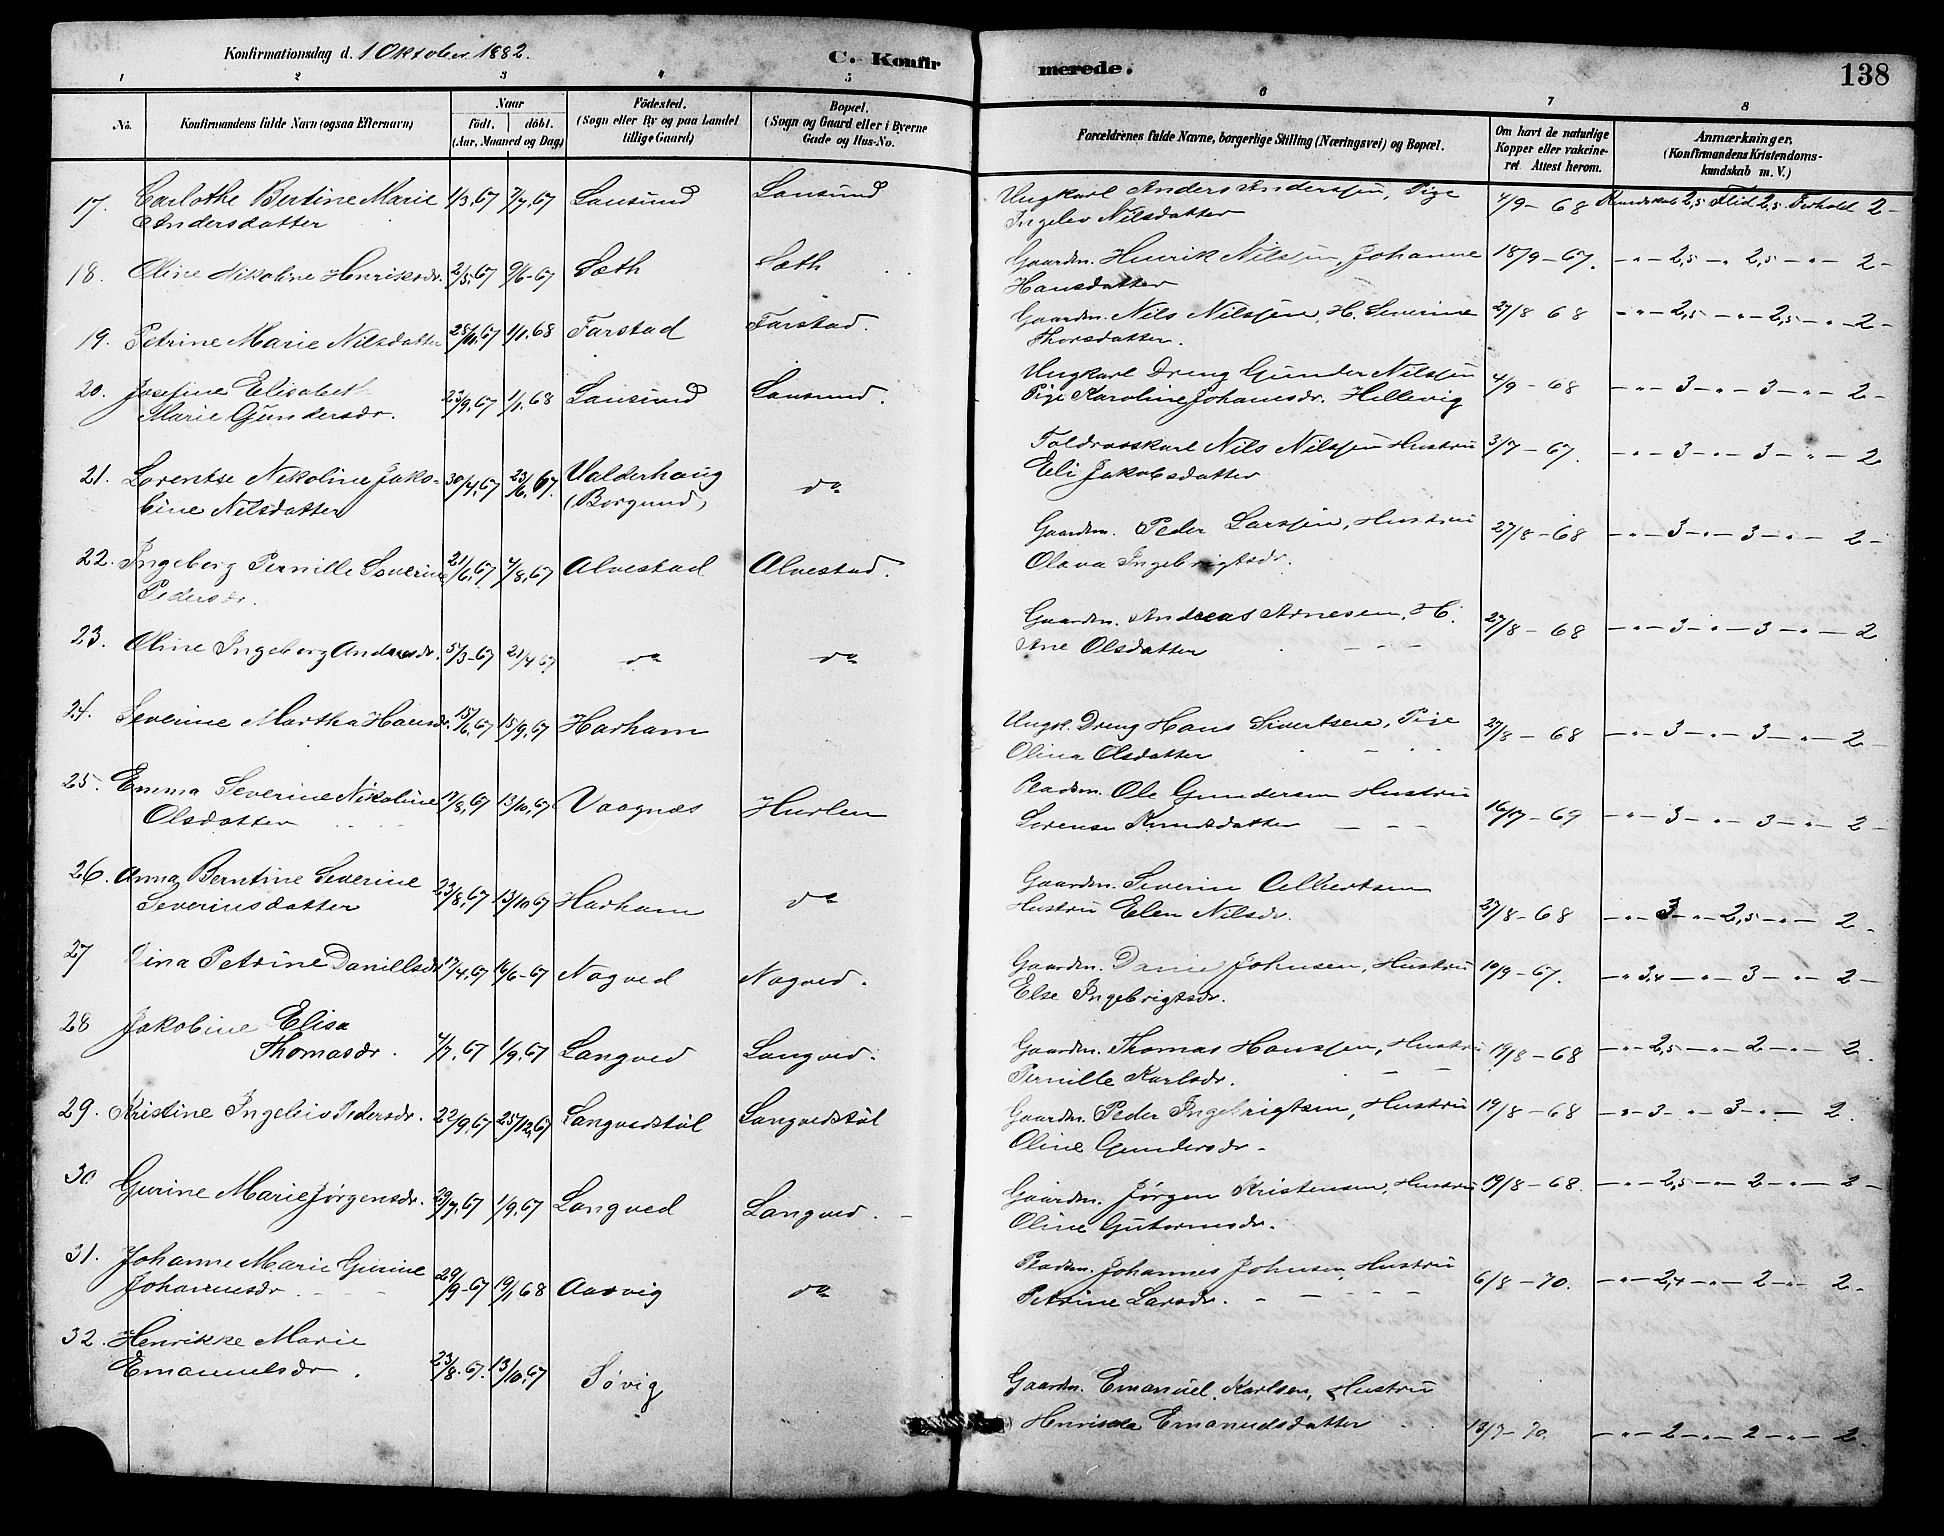 Konfirmationsdag d. 1 Oktober 1882.
C. Konfirmerede.
138
1 2 3 4 5 6 7 8
No.
Konfirmandens fulde Navn (ogsaa Efternavn)
Naar
födt. döbt.
(Aar, Maaned og Dag)
Födested.
(Sogn eller By og paa Landet tillige Gaard)
Bopæl.
(Sogn og Gaard eller i Byerne Gade og Hus-No.
Forældrenes fulde Navne, borgerlige Stilling (Næringsvei) og Bopæl.
Om havt de naturlige Kopper eller vakcineret. Attest herom.
Anmærkninger.
(Konfirmandens Kristendomskundskab m. V.)
17. Carlothe Bertine Marie 1/3,67 7/7,67 Lansund Lansund Ungkarl Anders Anderssen, Pige 4/9-68 Kundskab 2,5 Flid 2,5 Forhold 2-
Andersdatter Ingelev Nilsdatter
18. Oline Nikoline Henriksdr. 2/5,67 9/6-67 Sæth Sæth Gaardm. Henrik Nilssen, Johanne 18/9-67. -"- 2,5 -"- 2,5 -"- 2-
Hansdatter
19. Petrine Marie Nilsdatter 28/10,67 1/1,68 Farstad Farstad. Gaardm. Nils Nilssen, H. Severine 27/8 68 -"- 2,5 -"- 2,5 -"- 2-
Thorsdatter.
20. Josefine Elisabeth 23/9,67 1/1,68 Lansund Lansund. Ungkarl Dreng Gunder Nilssen 4/9-68 -"- 3 -"- 3 -"- 2-
Marie Gundersdr. Pige Karoline Johansdr. Hellevig
21. Lorentse Nikoline Jako- 30/4,67 23/6,67. Valderhaug do Toldrosskarl Nils Nilssen Hustru 3/7-67. -"- 3 -"- 3 -"- 2
bine Nilsdatter (Borgund) Eli Jakobsdatter
22. Ingeborg Pernille Severine 21/6,67 4/8,67 Alvestad Alvestad. Gaardm. Peder Larssen, Hustru 27/8-68 -"- 3 -"- 3 -"- 2-
Pedersdr. Olava Ingebrigtsdr.
23. Oline Ingeborg Andreasdr. 5/3-67 21/4 67 do do Gaardm. Andreas Arnesen, H. 27/8-68 -"- 3 -"- 3 -"- 2
Ane Olsdatter
24. Severine Martha Hansdr. 15/6,67 15/9,67 Harham Ungk. Dreng Hans Sivertsen, Pige 27/8-68 -"- 3 -"- 3 -"- 2-
Olina Olsdatter
25. Emma Severine Nikoline 17/8,67 13/10,67 Vaagnæs Hurlen Pladsm. Ole Gundersen Hustru 16/7-69 -"- 3 -"- 3 -"- 2-
Olsdatter Severine Knudsdatter
26. Anna Berntine Severine 23/8,67 13/10 67 Harham do Gaardm. Severin Albertsen 27/8-68 -"- 3 -"- 2,5 -"- 2-
Severinsdatter Hustru Elen Nilsdr.
27 Dina Petrine Daniellsdr 17/4,67 16/6-67 Nogved Nogved. Gaardm. Daniel Johnsen, Hustru 10/9-67. -"- 3,4 -"- 3 -"- 2-
Else Ingebrigtsdr.
28 Jakobine Elisa 4/7,67 1/9,67 Langved Langved. Gaardm. Thomas Hanssen, Hustru 19/8-68 -"- 2,5 -"- 2 -"- 2.
Thomasdr. Pernille Karlsdr.
29. Kristine Ingeleis Pedersdr. 22/9,67 25/12,67 Langvedstöl Langvedstöl Gaardm. Peder Ingebrigtsen, Hustru 19/8-68 -"- 3 -"- 3 -"- 2.
Oline Gundersdr.
30 Gurine Marie Jørgensdr. 29/7,67 1/9,67 Langved Langved. Gaardm. Jørgen Kristensen, Hustru 19/8-68. -"- 2,5 -"- 2 -"- 2-
Oline Gutormsdr.
31. Johanne Marie Gurine 29/9-67 19/1 68 Aarvig do Pladsm. Johannes Johnsen, Hustru 6/8-70. -"- 2,4 -"- 2 -"- 2-
Johannesdr Petrine Larsdr.
32. Henrikke Marie 23/8.67. 13/10,67 Søvig Gaardm. Emanuel Karlsen, Hustru 13/7-70. -"- 2 -"- 2 -"- 2.
Emanuelsdr. Emanuelsdatter